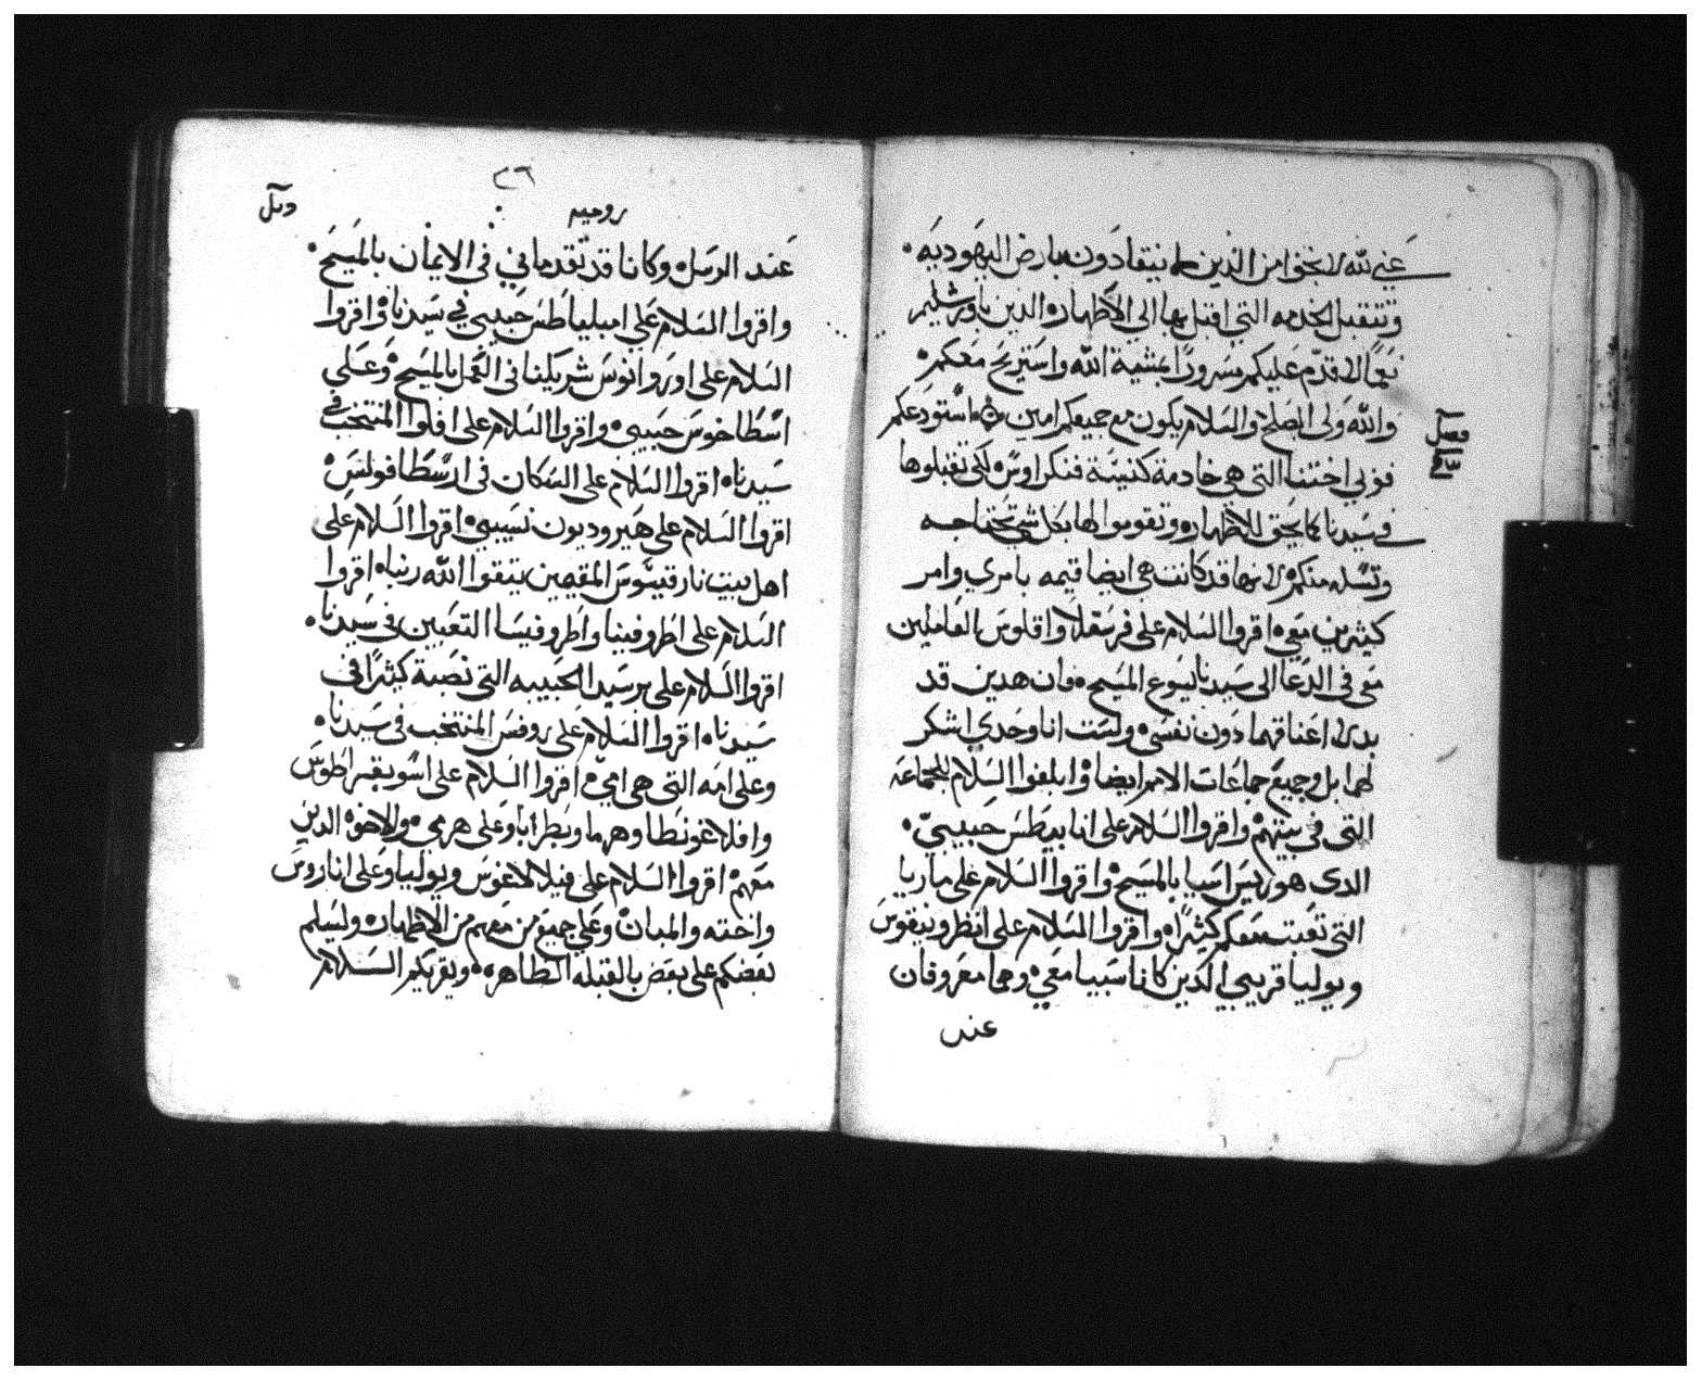 عني لله لانجوا من الذين لا ينقادون بارض اليهوديه
وتتقبل الخدمه التي اقبل بها الي الاطهار الذين باورشليم
نعما لاقدم عليكم مسرورا بمشية الله واستريح معكم
والله ولي الصلح والسلام يكون مع جميعكم امين استودعكم
فصل
فوبي اختنا التي هي خادمة كنيسة فنكراوس لكي تقبلوها
في سيدنا كما يحق للاطهار وتقوموا لها بكل شي تحتاجه
وتسله منكم لانها قد كانت هي ايضا قيمه بامري وامر
كثيرين معي اقروا السلام على فرسقلا واقلوس العاملين
معي في الدعا الى سيدنا يسوع المسيح وان هدين قد
بدلا اعناقهما دون نفسي ولست انا وحدي اشكر
لهما بل وجميع جماعات الامم ايضا وابلغوا السلام للجماعه
التي في بيتهم واقروا السلام على انابيطس حبيبي
الدى هو ريس اسيا بالمسيح واقروا السلام على ماريا
التي تعبت معكم كثيرا واقروا السلام على انظرونيقوس
ويوليا قريبي الدين كانا سبيا معي وهما معروفان
عند
٢٦
روميه
عند الرسل وكانا قد تقدماني في الايمان بالمسيح
واقروا السلام علي امبلياطس حبيبي في سيدنا واقروا
السلام على اوروانوس شريكنا في العمل بالمسيح وعلي
اسطاخوس حبيبي واقروا السلام على افلوا المنتخب في
سيدنا اقروا السلام على السكان في ارسطافولس
اقروا السلام على هيروديون نسيبي اقروا السلام على
اهل بيت نارقيسوس المقيمين يتقوا الله ربنا اقروا
السلام على اطروفينا واطروفيسا التعبين في سيدنا
اقروا السلام على برسيدا الحبيبه التي نصبة كثيرا في
سيدنا اقروا السلام على روفس المنتخب في سيدنا
وعلى امه التي هي امي اقروا السلام على اسويقراطوس
وافلاغونطا وهرما وبطرابا وعلى هرمي وللاخوه الدين
معهم اقروا السلام على فيلالاغوس ويوليا وعلى اناروس
واخته والمبان وعلي جميع من معهم من الاطهار وليسلم
بعضكم على بعض بالقبله الطاهره ويقريكم السلام